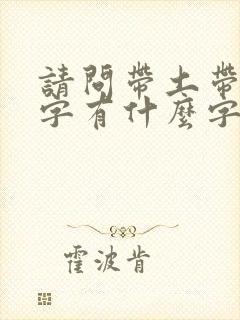 請問帶土帶
字有什麼字
霍波肯